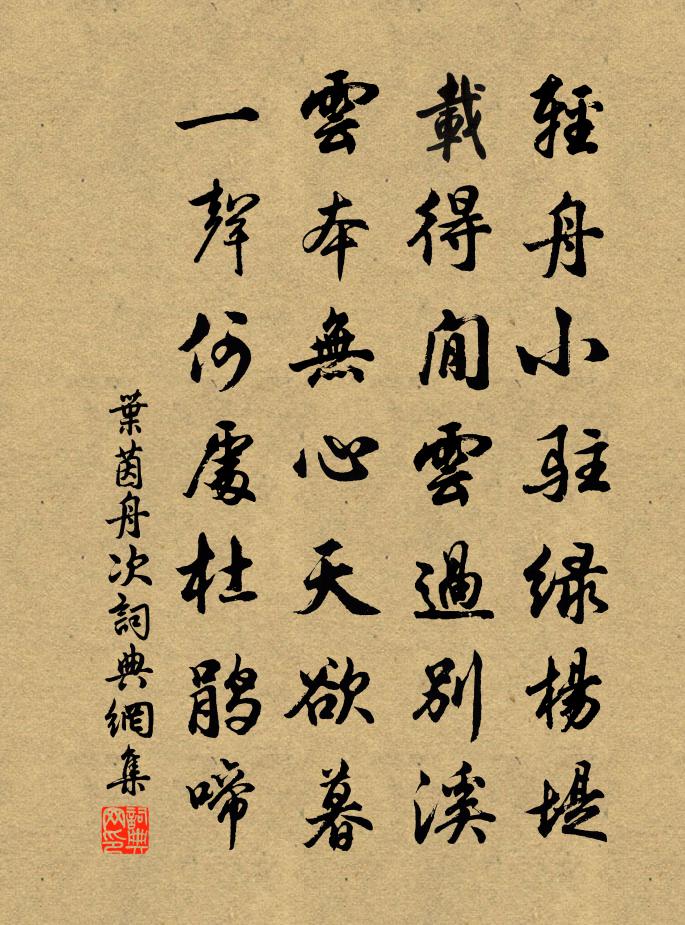 輕舟小駐綠楊堤
載得閒雲過別溪
雲本無心天欲暮
一聲何處杜鵑啼
葉茵舟次詞典網集
詞典网印